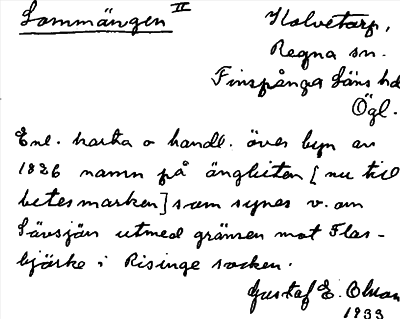 Sommängen II
Kolvetorp,
Regna sn.
Finspånga läns hd
Ögl.
Enl. karta o handl. över byn av
1826 namn på ängbiten [nu till
betesmarken] som synes v. om
Sävsjön utmed gränsen mot Flas-
bjärke i Risinge socken.
Gustaf E. Olson
1933